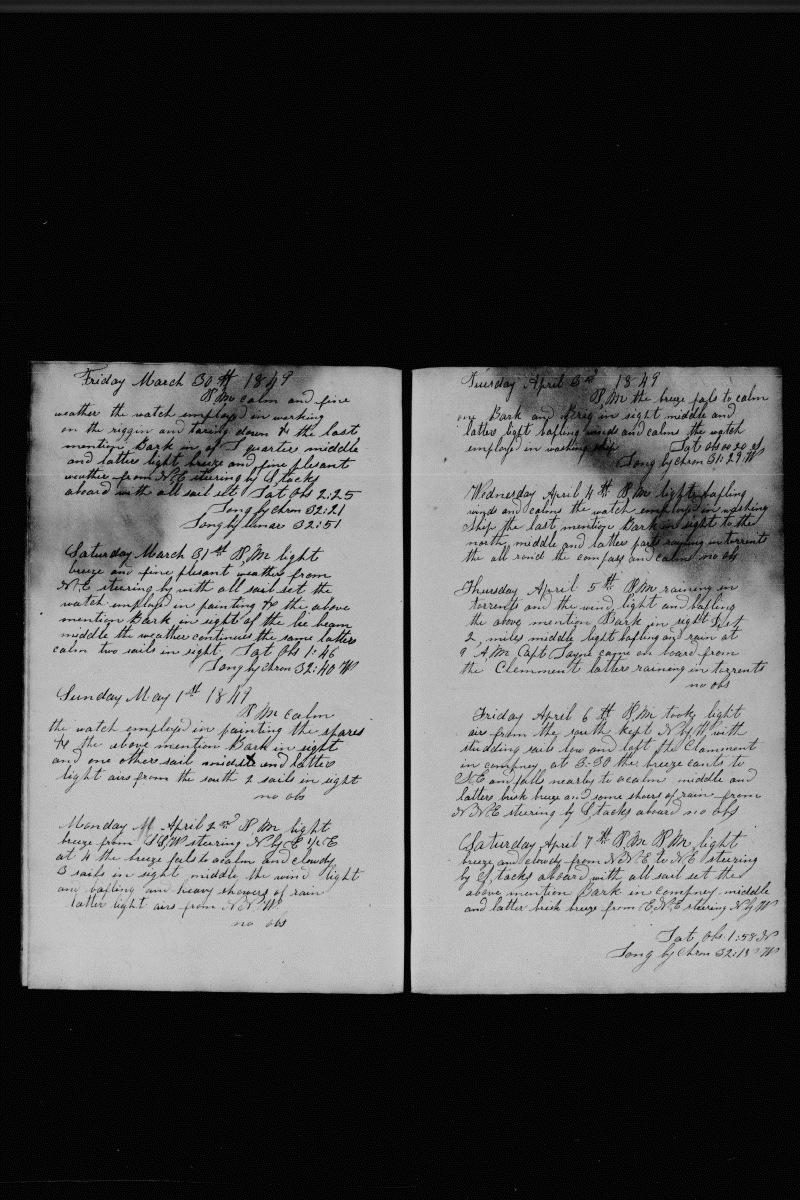 Friday March 30th 1849
P,M calm and fine
weather the watch employed in working
on the riggin and taring down &c the last
mention Bark in of quarters middle
and latters light breeze and fine plesant
weather from N,E steering by Stacks
aboard with all sail set Lat Obs 2:25
Long by chron 32:21
Long by lunar 32:51
Saturday March 31st P,M light
breeze and fine plesant weather from
N,E steering by with all sail set the
watch employed in painting &c the above
mention Bark in sight of the lee beam
middle the weather continues the same latters
calm two sails in sight Lat Obs 1:46
Long by chron 32:40 W
Sunday May 1st 1849
P M calm
the watch employed in painting the spares
&c the above mention Bark in sight
and one others sail middle and latter
light airs from the south 2 sails in sight
no obs
Monday April 2nd P,M light
breeze from S S,W steering N by E ½ E
at 4 the breeze fals to a calm and cloudy
3 sails in sight middle the wind light
and bafling and heavy showers of rain
latter light airs from N N W
no obs
Tuesday April 3rd 1849
P,M the breeze fals to calm
one Bark and Breig in sight middle and
latters light bafling winds and calms the watch
employed in washing ship Lat obs 00:20
Long by chron 31:29 W
Wednesday April 4th P,M light bafling
winds and calms the watch employed in washing
ship the last mention Bark in sight to the
north middle and latters parts raining in torrents
the all round the compass and calms no obs
Thursday April 5th P,M raining in
torrents and the wind light and bafling
the above mention Bark in sight dist
2, miles middle light bafling and rain at
9 A,M, Capt Jayne came on board from
the Clemment latters raining in torrents
no obs
Friday April 6th P,M took light
airs from the south kept N by W with
studding sails low and loft the Clamment
in compney, at 3-30 the breeze cants to
N,E and falls nearly to a calm middle and
latters brisk breeze and some shours of rain from
N N,E steering by Stacks aboard no obs
Saturday April 7th P,M P,M light
breeze and cloudy from N N,E to N,E steering
by Stacks aboard with all sail set the
above mention Bark in compney middle
and latter brisk breeze from E,N,E steering N by W
Lat Obs 1:58 N
Long by chron 32:18 W